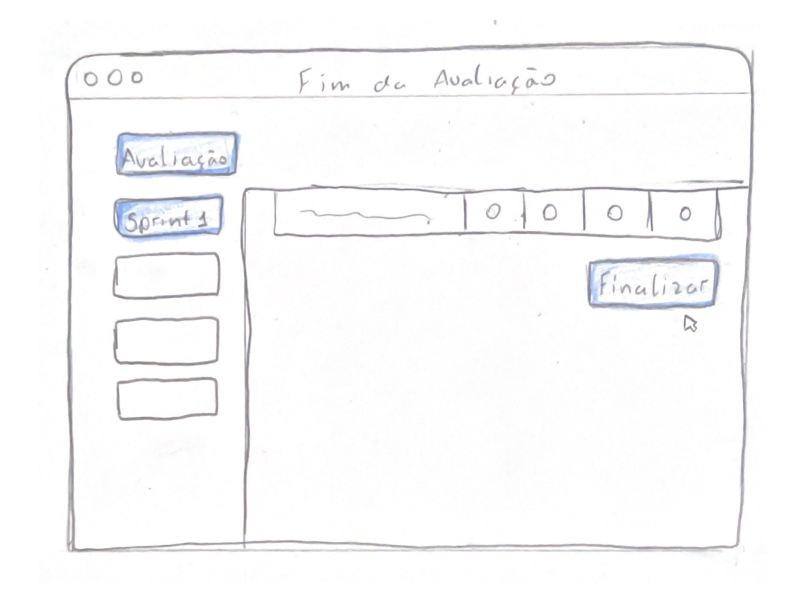 Fim da Avaliação
Avaliação
Sprint 1
Finalizar